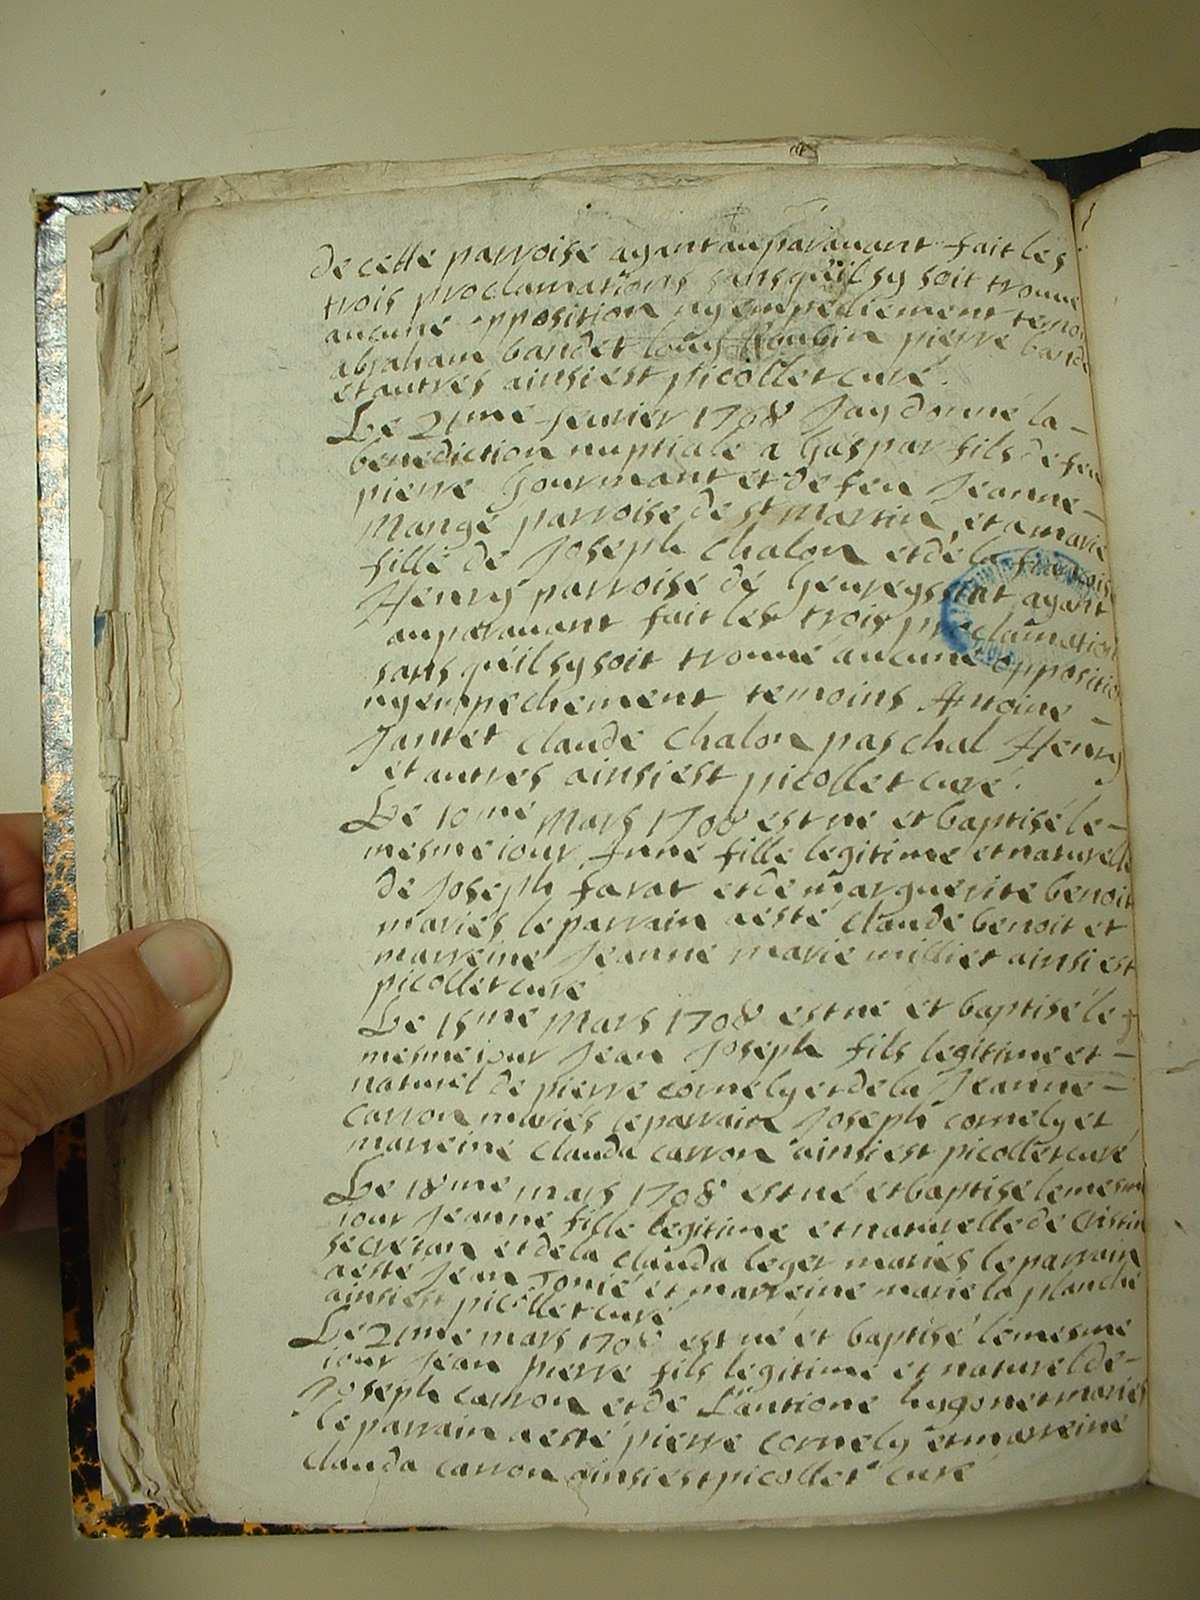 de cette parroise ayant auparauant fait les
trois proclamations sans quil sy soit trouue
aucune opposition ny empechement temoi
abraham baudet louys pierre baude
et autres ainsi est picollet curé.
Le 21me feurier 1708 Jay donné la -
benediction nuptiale a Gaspar fils de feu
pierre Gourmant et de feu Jeanne -
Mange parroise de st Martin et a marie
fille de Joseph Chalon et de la francois
Henry parroise de ayant
auparauant fait les trois proclamation
sans quil sy soit trouué aucune oppositio
ny empechement temoins Antoine -
Jantet claude Chalon paschal Henry
et autres ainsi est picollet curé.
Le 10me Mars 1708 est né et baptisé le -
mesme iour Anne fille legitime et naturelle
de Joseph farat et de marguerite benoit
mariés le parrain a esté claude benoit et
marreine Jeanne marie milliet ainsi est
picollet curé
Le 15me Mars 1708 est né et baptisé le -
mesme iour Jean Joseph fils legitime et -
naturel de pierre cornely et de la Jeanne -
carron mariés le parrain Joseph cornely et
marreine clauda carron ainsi est picollet curé
Le 18me mars 1708 est né et baptisé le mesme
iour Jeanne fille legitime et naturelle de Cristin
secretan et de la clauda leger mariés le parrain
a esté Jean Jorié et marreine marie la planche
ainsi est picollet curé
Le 21me mars 1708 est né et baptisé le mesme
iour Jean pierre fils legitime et naturel de -
Joseph carron et de L'antione hugonet mariés
le parrain a esté pierre cornely et marreine
clauda carron ainsi est picollet curé